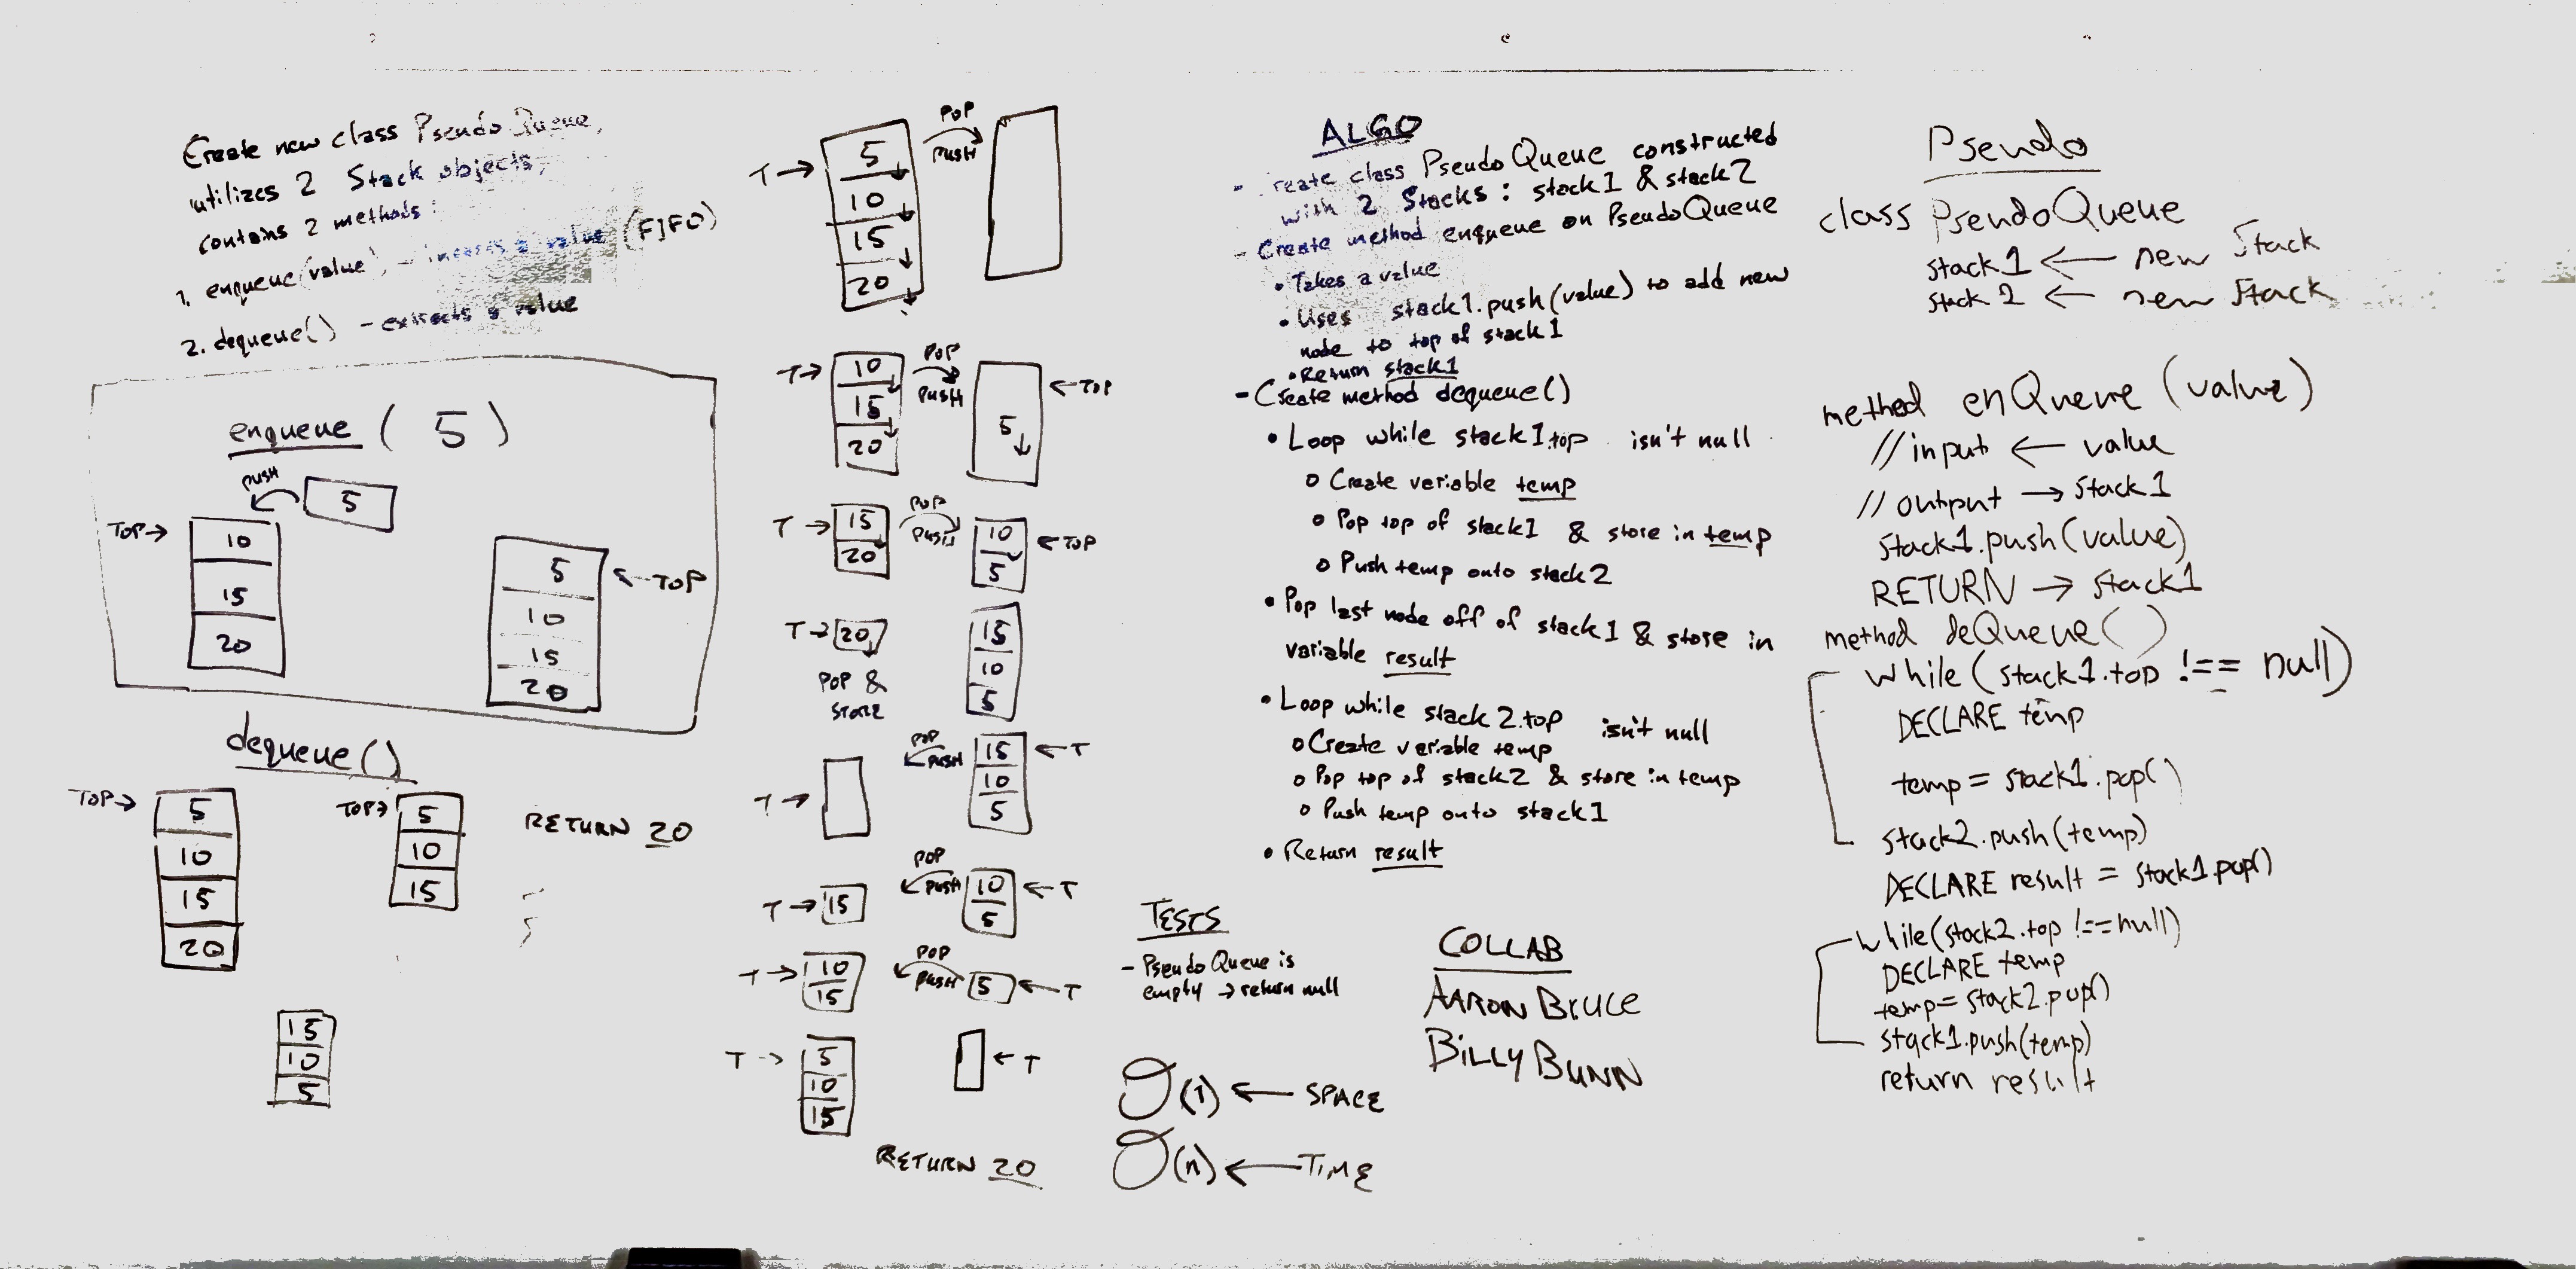 Create new class Pseudo Queue,
utilizes 2 Stack objects,
contains 2 methods:
1. enqueue(value) - inserts a value (FIFO)
2. dequeue() - extracts a value
enqueue ( 5 )
PUSH
5
TOP →
10
15
20
5
10
15
20
← TOP
dequeue()
TOP →
5
10
15
20
TOP →
5
10
15
RETURN 20
15
10
5
T →
5
10
15
20
POP
PUSH
T →
10
15
20
POP
PUSH
5
← TOP
T →
15
20
POP
PUSH
10
5
← TOP
T →
20
POP &
STORE
15
10
5
T →
POP
PUSH
15
10
5
← T
T →
15
POP
PUSH
10
5
← T
T →
10
15
POP
PUSH
5
← T
T →
5
10
15
← T
RETURN 20
ALGO
- reate class PseudoQueue constructed
with 2 Stacks: stack1 & stack2
- Create method enqueue on PseudoQueue
• Takes a value
• Uses stack1.push(value) to add new
node to top of stack1
• Return stack1
- Create method dequeue()
• Loop while stack1.top isn't null
o Create variable temp
o Pop top of stack1 & store in temp
o Push temp onto stack2
• Pop last node off of stack1 & store in
variable result
• Loop while stack2.top isn't null
o Create variable temp
o Pop top of stack2 & store in temp
o Push temp onto stack1
• Return result
TESTS
- Pseudo Queue is
empty → return null
O(1) ← SPACE
O(n) ← TIME
COLLAB
AARON BRUCE
BILLY BUNN
Pseudo
class PseudoQueue
stack1 ← new Stack
stack2 ← new Stack
method enQueue (value)
// input ← value
// output → stack1
stack1.push(value)
RETURN → stack1
method deQueue()
while(stack1.top !== null)
DECLARE temp
temp = stack1.pop()
stack2.push(temp)
DECLARE result = stack1.pop()
while(stack2.top !== null)
DECLARE temp
temp = stack2.pop()
stack1.push(temp)
return result